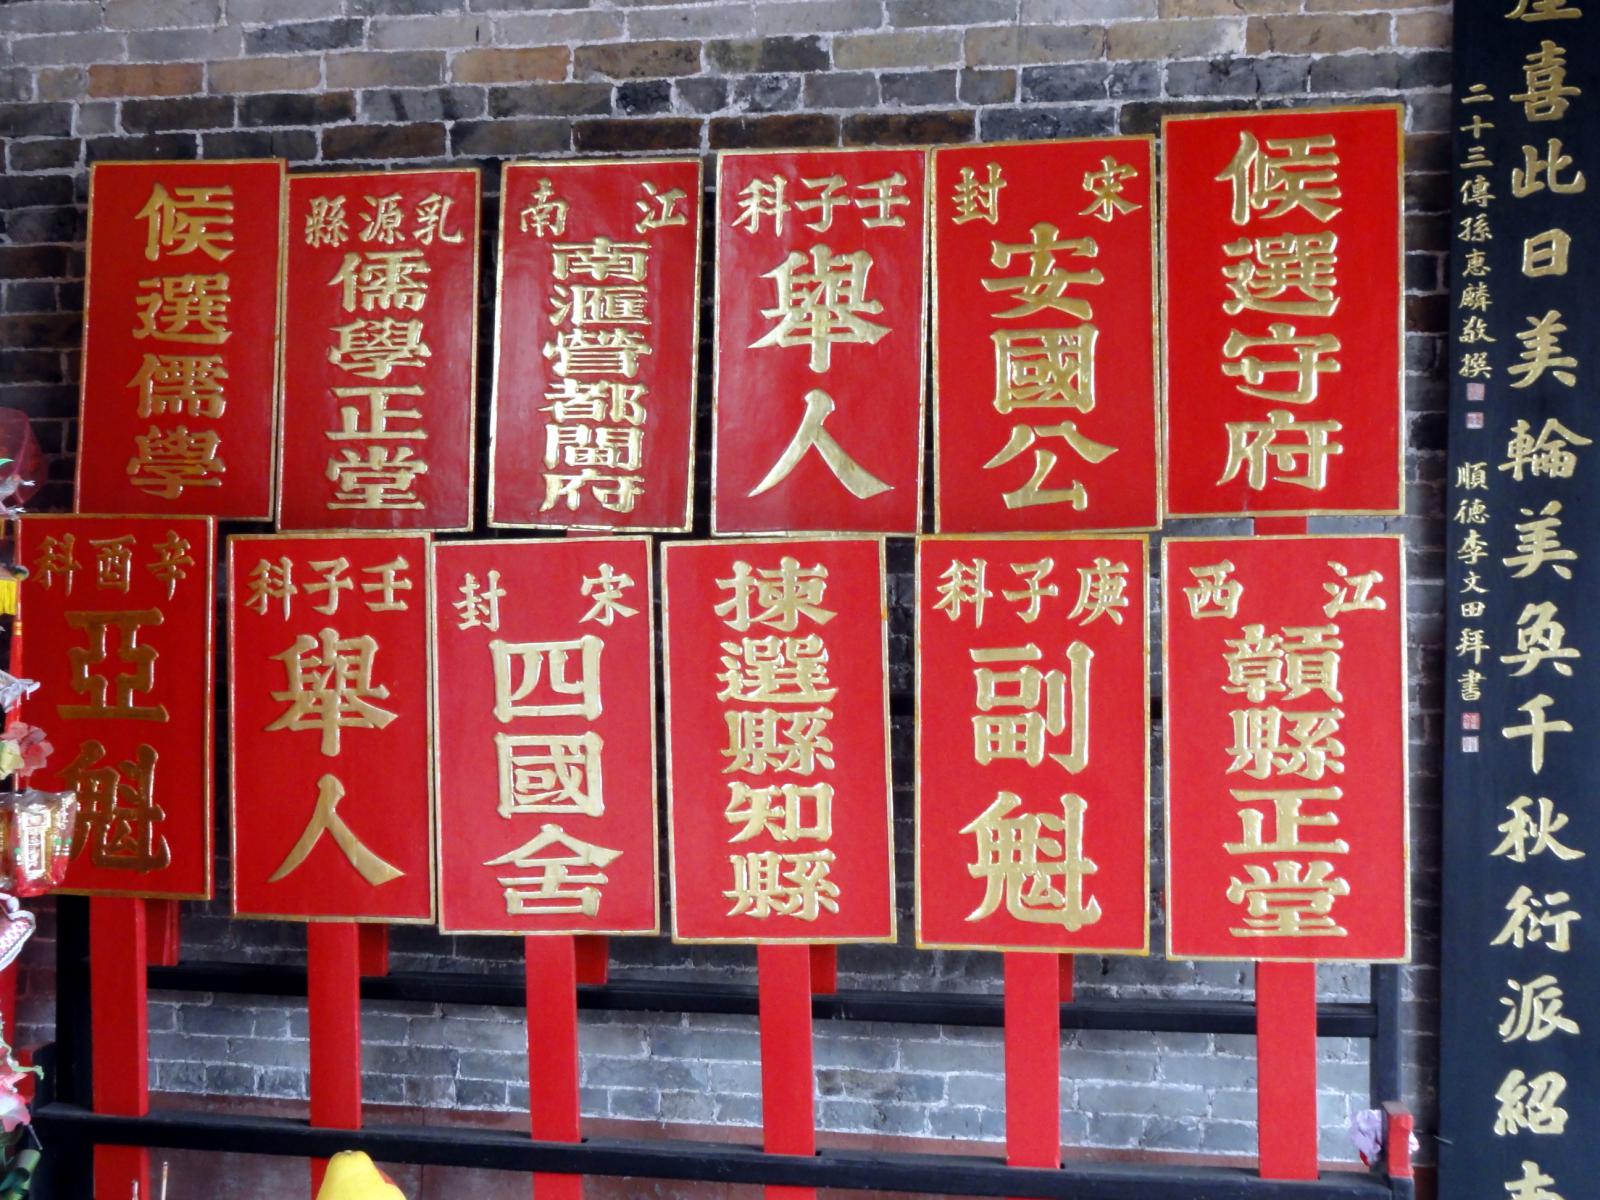 候選守府
宋封
安國公
壬子科
舉人
江南
南滙營都閫府
乳源縣
儒學正堂
候選儒學
江西
贑縣正堂
庚子科
副魁
揀選縣知縣
宋封
四國舍
壬子科
舉人
辛酉科
亞魁
喜此日美輪美奐千秋衍派紹
二十三傳孫惠麟敬撰
順德李文田拜書